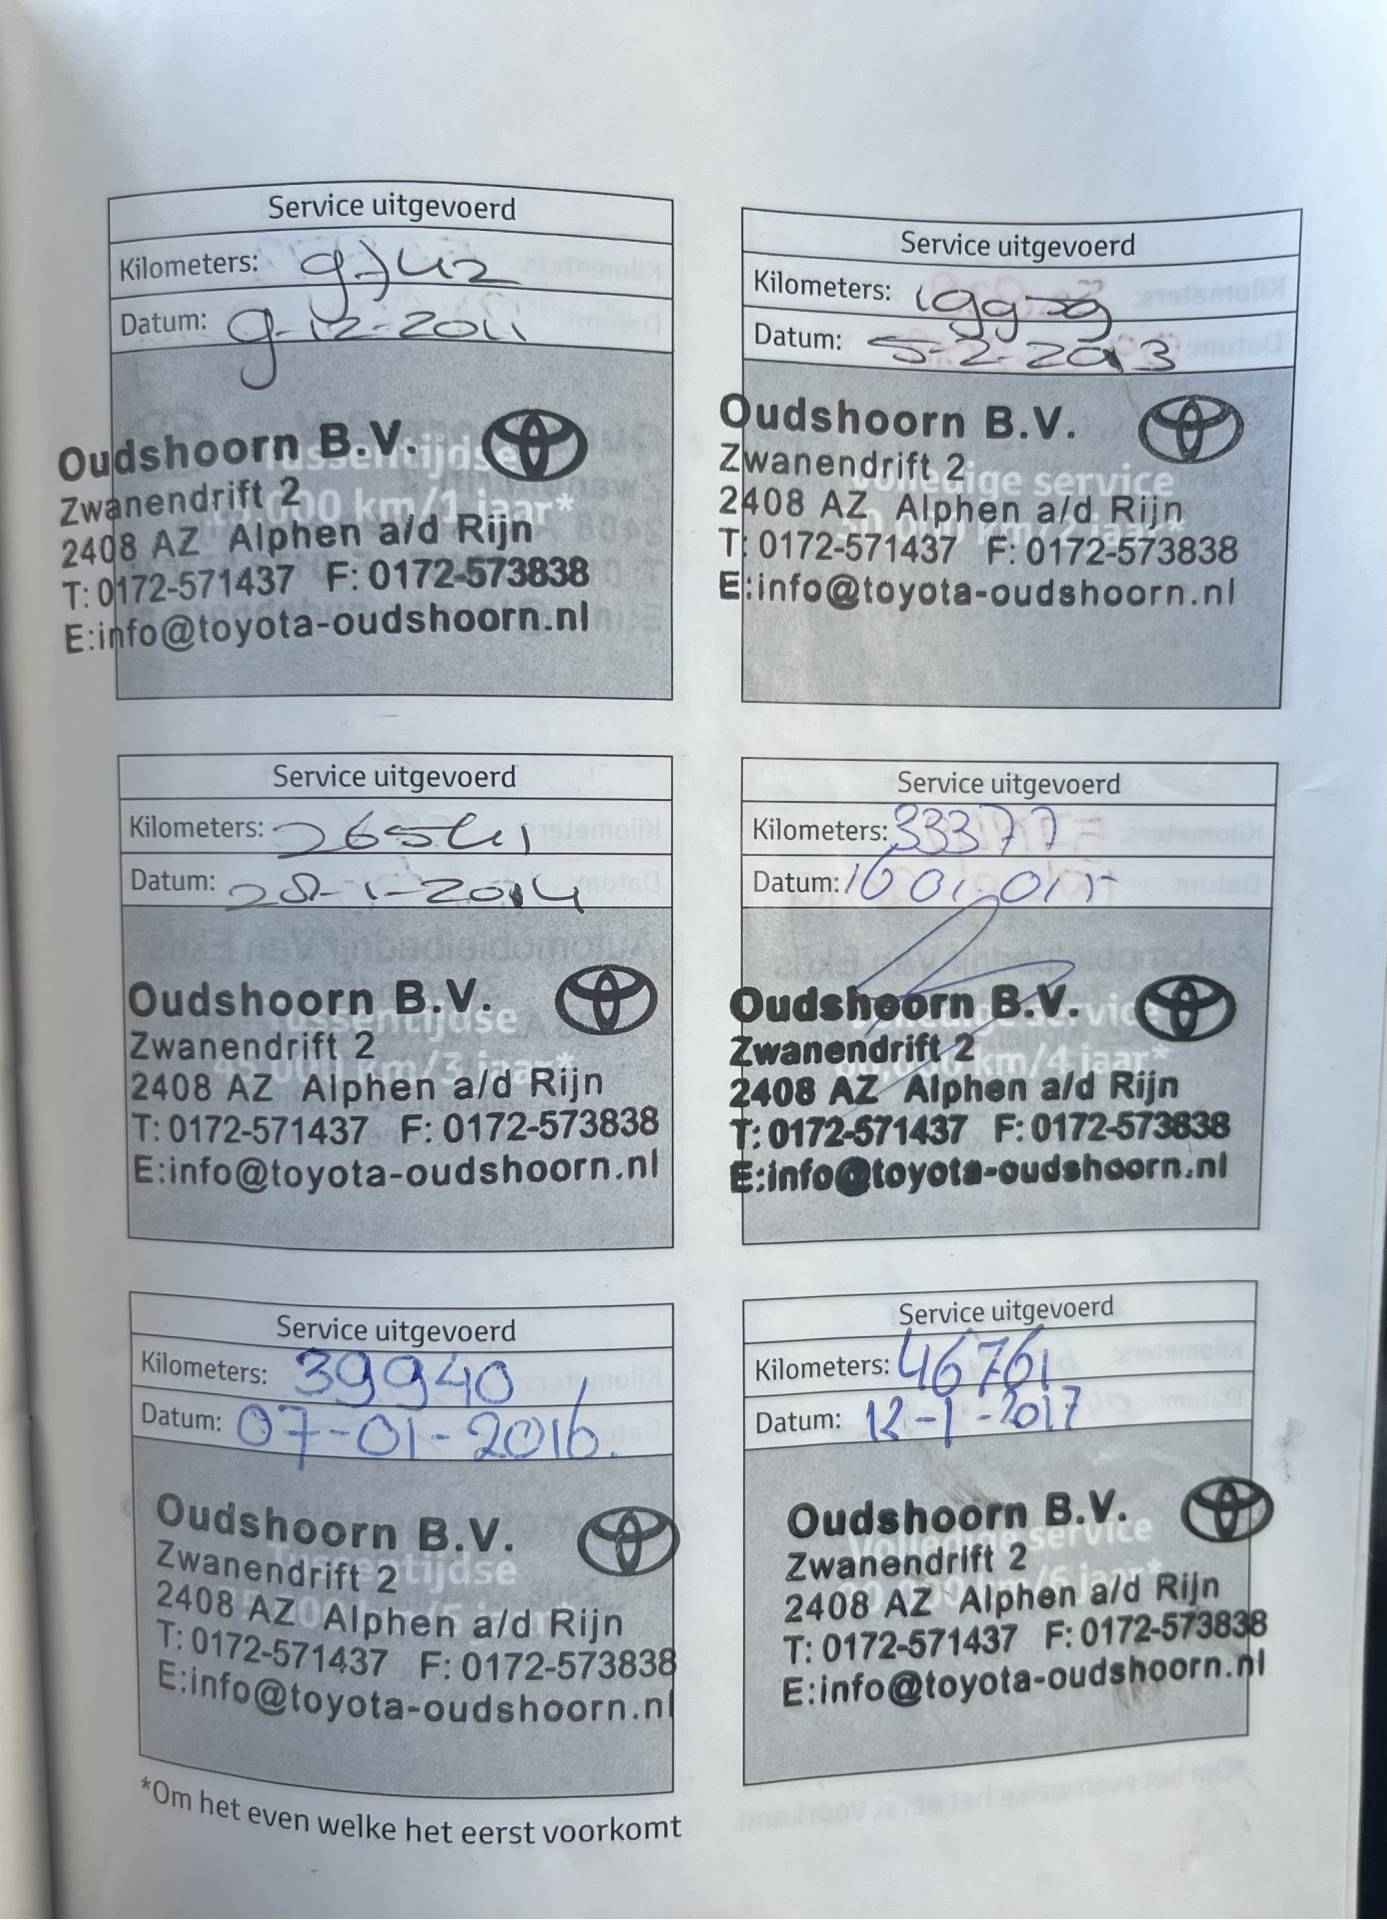 Service uitgevoerd
Kilometers: 9742
Datum: 9-12-2011
Tussentijdse
15.000 km/1 jaar*
Oudshoorn B.V.
Zwanendrift 2
2408 AZ Alphen a/d Rijn
T: 0172-571437 F: 0172-573838
E:info@toyota-oudshoorn.nl
Service uitgevoerd
Kilometers:
Datum: 5-2-2013
Volledige service
30.000 km/2 jaar*
Oudshoorn B.V.
Zwanendrift 2
2408 AZ Alphen a/d Rijn
T: 0172-571437 F: 0172-573838
E:info@toyota-oudshoorn.nl
Service uitgevoerd
Kilometers: 26541
Datum: 28-1-2014
Tussentijdse
45.000 km/3 jaar*
Oudshoorn B.V.
Zwanendrift 2
2408 AZ Alphen a/d Rijn
T: 0172-571437 F: 0172-573838
E:info@toyota-oudshoorn.nl
Service uitgevoerd
Kilometers: 33377
Datum:
Volledige service
60.000 km/4 jaar*
Oudshoorn B.V.
Zwanendrift 2
2408 AZ Alphen a/d Rijn
T: 0172-571437 F: 0172-573838
E:info@toyota-oudshoorn.nl
Service uitgevoerd
Kilometers: 39940
Datum: 07-01-2016.
Tussentijdse
75.000 km/5 jaar*
Oudshoorn B.V.
Zwanendrift 2
2408 AZ Alphen a/d Rijn
T: 0172-571437 F: 0172-573838
E:info@toyota-oudshoorn.nl
Service uitgevoerd
Kilometers: 46761
Datum: 12-1-2017
Volledige service
90.000 km/6 jaar*
Oudshoorn B.V.
Zwanendrift 2
2408 AZ Alphen a/d Rijn
T: 0172-571437 F: 0172-573838
E:info@toyota-oudshoorn.nl
*Om het even welke het eerst voorkomt